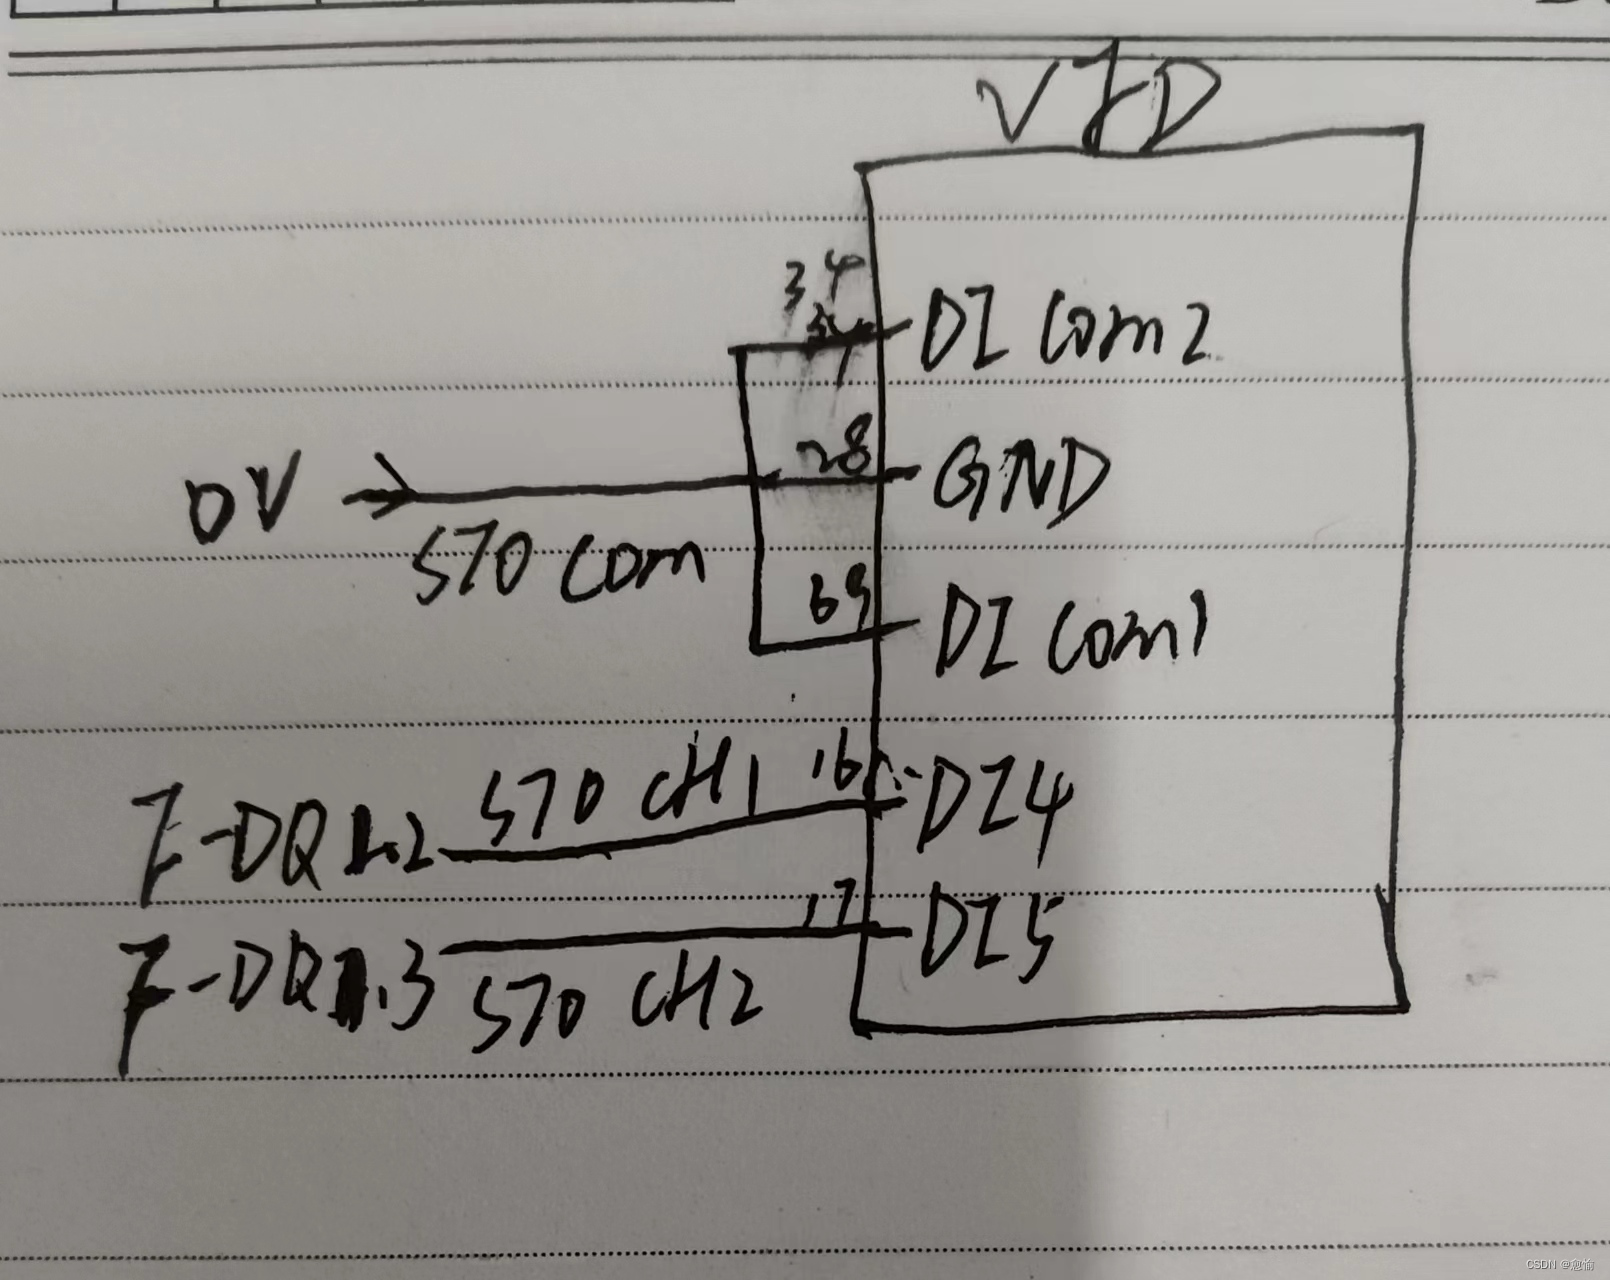 VFD
34
DI Com2
28
GND
0V
STO Com
69
DI Com1
STO CH1
16
DI4
F-DQ1.2
17
DI5
F-DQ1.3
STO CH2
CSDN @愈愉